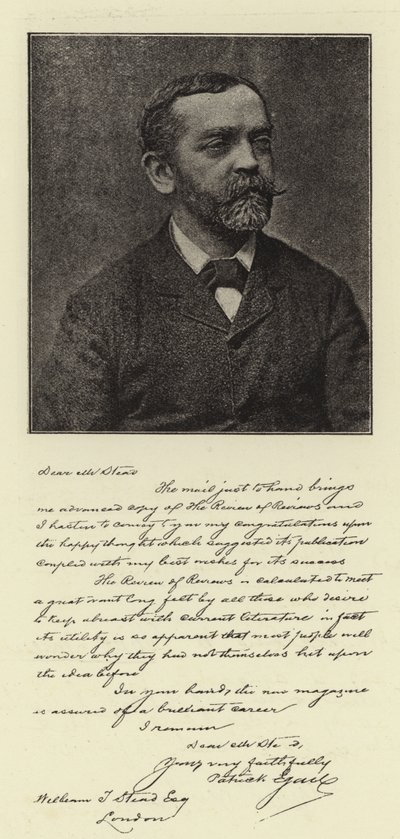 Dear Mr Stead
The mail just to hand brings
me advanced copy of The Review of Reviews and
I hasten to convey to you my congratulations upon
the happy thought which suggested its publication
coupled with my best wishes for its success
The Review of Reviews is calculated to meet
a great want long felt by all those who desire
to keep abreast with current literature in fact
its utility is so apparent that most people will
wonder why they had not themselves hit upon
the idea before
In your hands, the new magazine
is assured of a brilliant career
I remain
Dear Mr Stead,
Yours very faithfully
Patrick Egan
William T Stead Esq
London